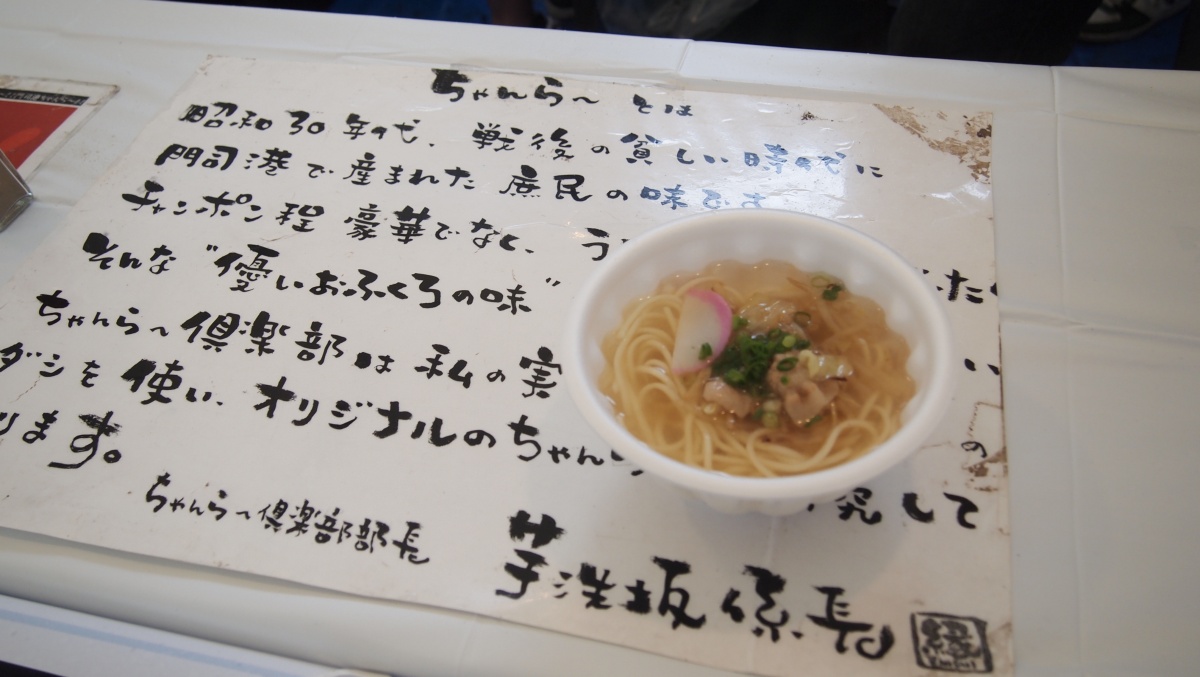 ちゃんら～とは
昭和30年代、戦後の貧しい時代に
門司港で産まれた庶民の味です
チャンポン程豪華でなく、う
そんな“優しいおふくろの味”
ちゃんら～倶楽部は私の実
ダシを使い、オリジナルのちゃん
究して
ります。
ちゃんら～倶楽部部長
芋洗坂係長